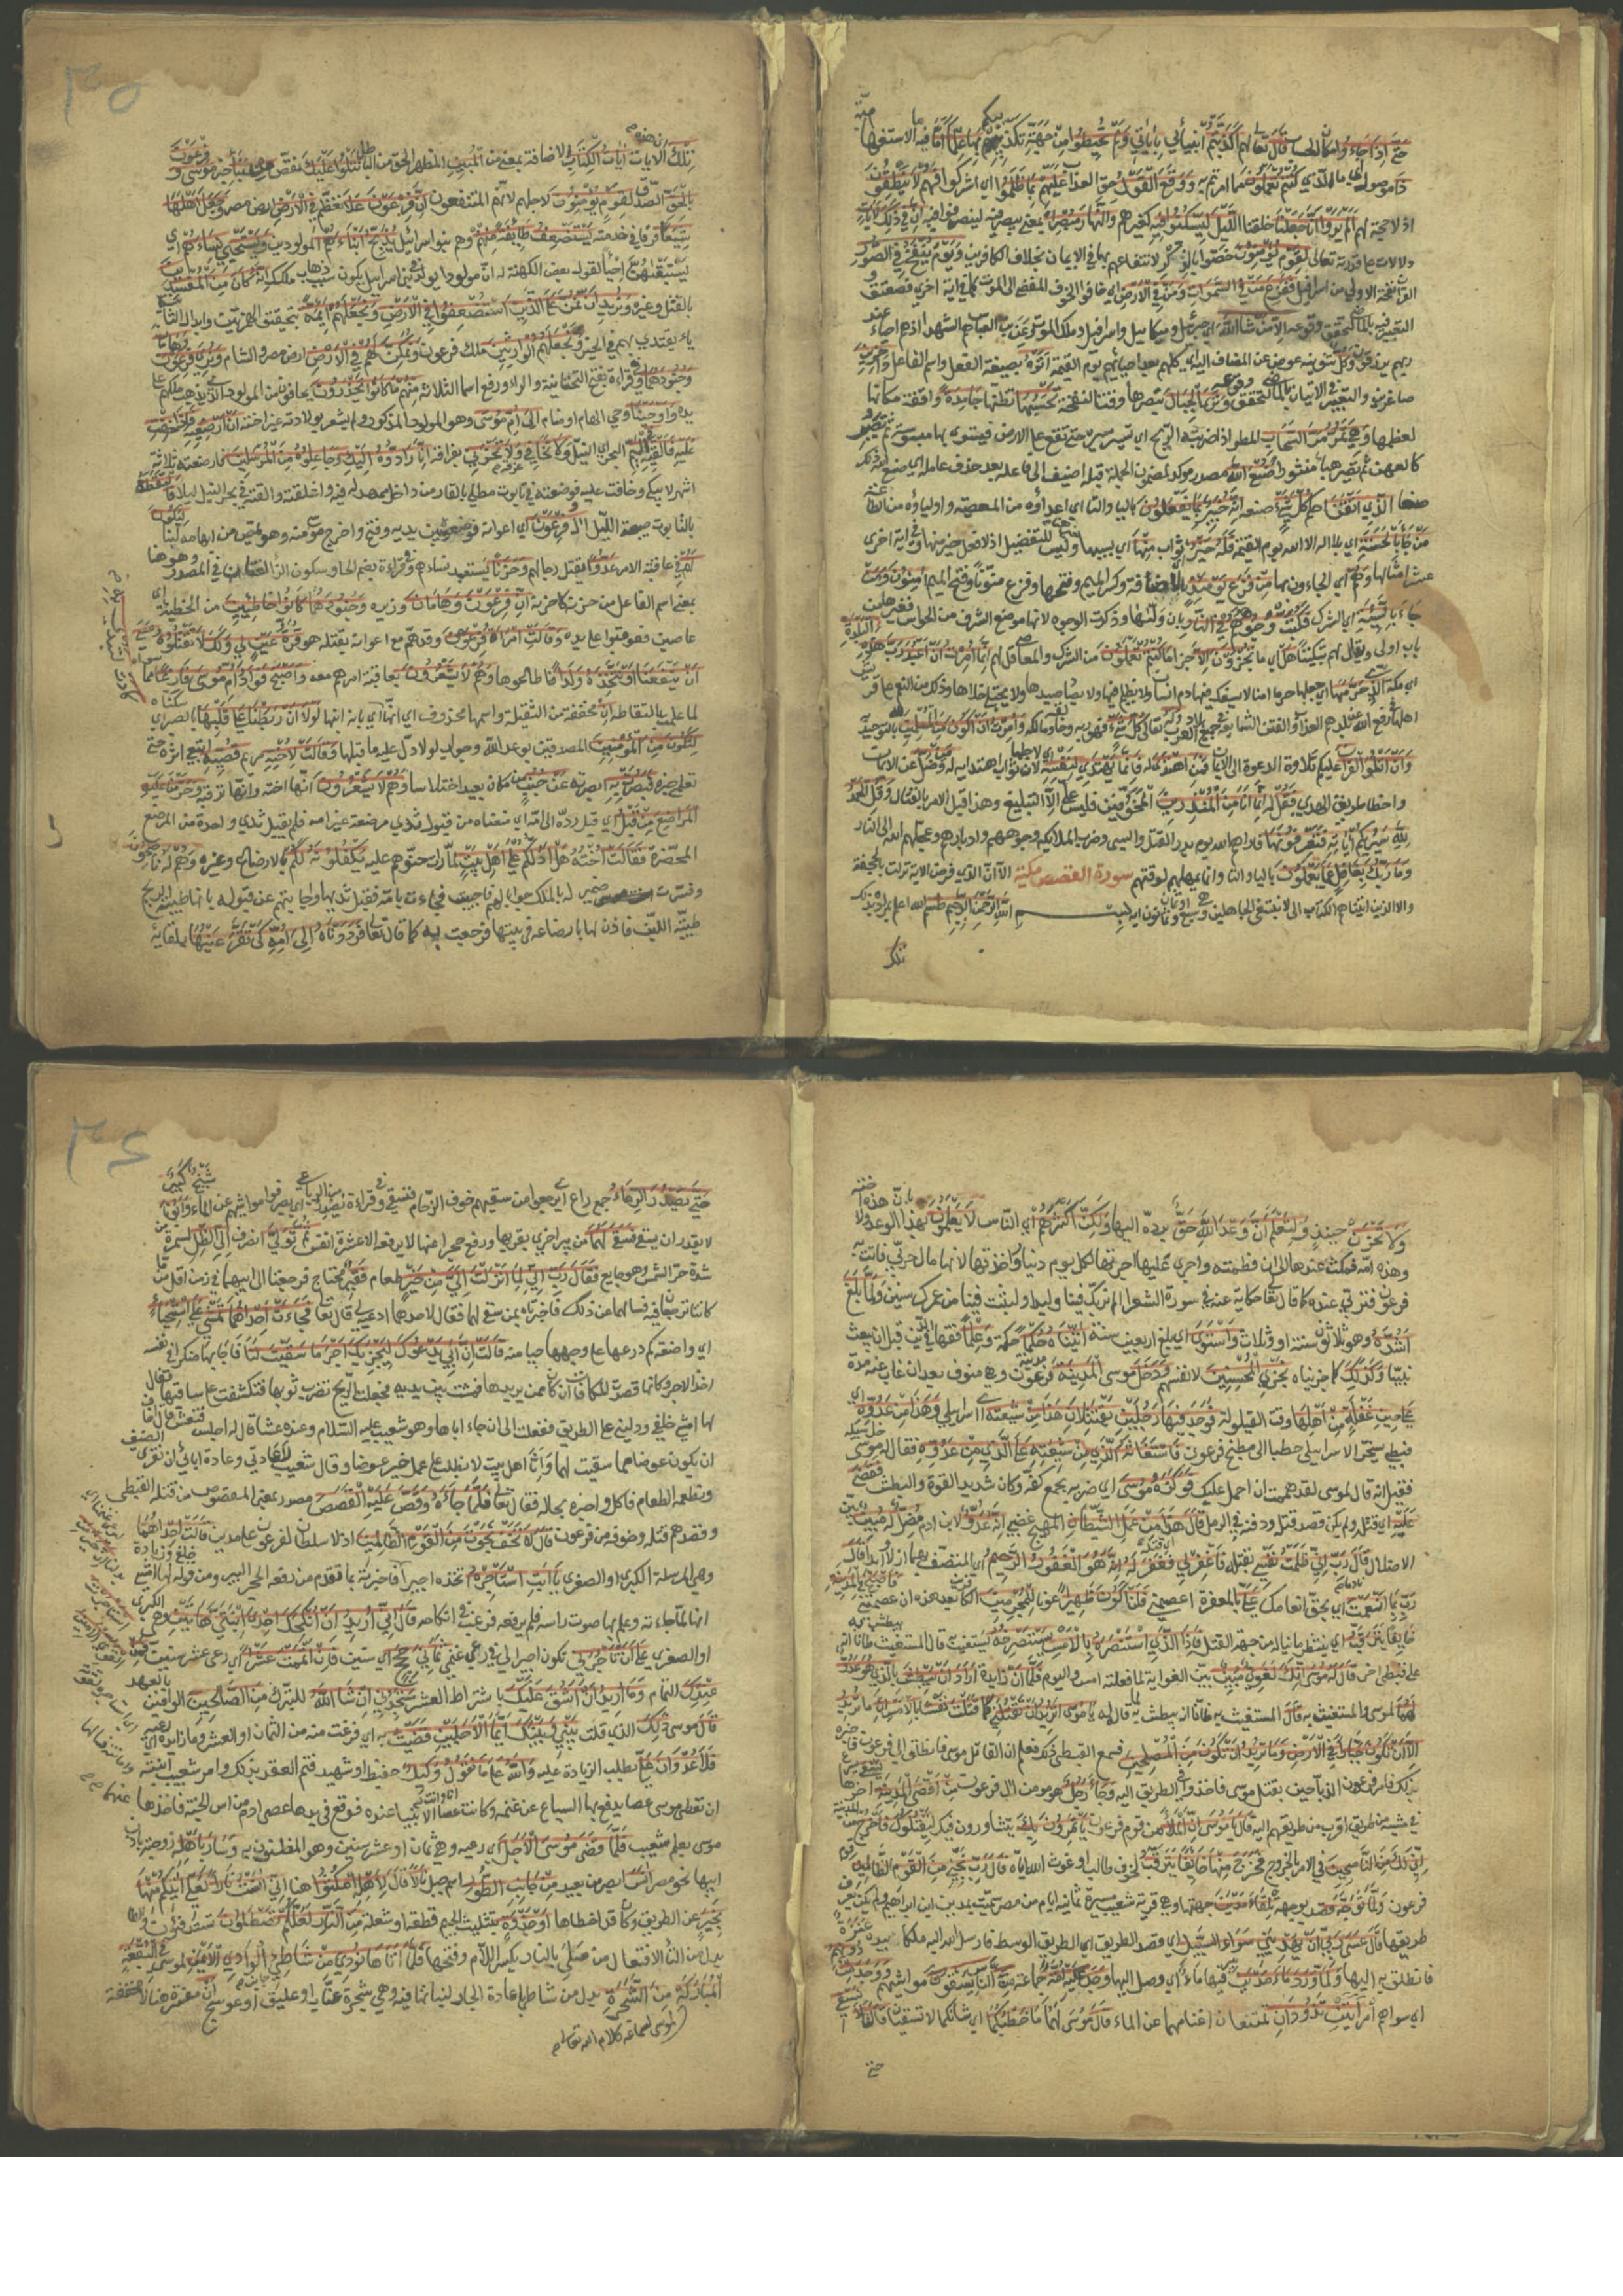 حتى اذا جاءوا مكان الحساب قال تعالى لهم اكذبتم انبيائي بآياتي ولم تحيطوا من جهة تكذيبكم بها علما اما فيه ما الاستفهامية
ذا موصول اي ما الذي كنتم تعملون مما امرتم به ووقع القول حق العذاب عليهم بما ظلموا اي اشركوا فهم لا ينطقون
اذ لا حجة لهم الم يروا انا جعلنا خلقنا الليل ليسكنوا فيه كغيرهم والنهار مبصرا بمعنى يبصر فيه ليتصرفوا فيه ان في ذلك لآيات
دلالات على قدرته تعالى لقوم يؤمنون خصوا بالذكر لانتفاعهم بها في الايمان بخلاف الكافرين ويوم ينفخ في الصور
القرن النفخة الاولى من اسرافيل ففزع من في السموات ومن في الارض اي خافوا الخوف المفضي الى الموت كما في آية اخرى فصعق و
التعبير فيه بالماضي لتحقق وقوعه الا من شاء الله اي جبرئيل وميكائيل واسرافيل وملك الموت وعن ابن عباس هم الشهداء اذ هم احياء عند
ربهم يرزقون وكل تنوينه عوض عن المضاف اليه اي كلهم بعد احيائهم يوم القيمة اتوه بصيغة الفعل واسم الفاعل داخرين
صاغرين والتعبير في الاتيان بالماضي لتحقق وقوعه وترى الجبال تبصرها وقت النفخة تحسبها تظنها جامدة واقفة مكانها
لعظمها وهي تمر مر السحاب المطر اذا ضربته الريح اي تسير سيره حتى تقع على الارض فتستوي بها مبسوسة ثم تصير
كالعهن ثم تصير هباء منثورا صنع الله مصدر مؤكد لمضمون الجملة قبله اضيف الى فاعله بعد حذف عامله اي صنع الله ذلك
صنعا الذي اتقن احكم كل شيء صنعه انه خبير بما يفعلون بالياء والتاء اي اعداؤه من المعصية واولياؤه من الطاعة
من جاء بالحسنة اي بلا اله الا الله يوم القيمة فله خير ثواب منها اي بسببها وليس للتفضيل اذ لا فعل خير منها وفي آية اخرى
عشر امثالها وهم اي الجاءون بها من فزع يومئذ بالاضافة وكسر الميم وفتحها وفزع منونا وفتح الميم آمنون ومن
جاء بالسيئة اي الشرك فكبت وجوههم في النار بان وليتها وذكرت الوجوه لانها موضع الشرف من الحواس فغيرها من
باب اولى ويقال لهم تبكيتا هل اي ما تجزون الا جزاء ما كنتم تعملون من الشرك والمعاصي قل لهم انما امرت ان اعبد رب هذه البلدة
اي مكة الذي حرمها اي جعلها حرما آمنا لا يسفك فيها دم انسان ولا يظلم فيها احد ولا يصاد صيدها ولا يختلى خلاها وذلك من النعم على قريش
اهلها في رفع الله عن بلدهم العذاب والفتن الشائعة في جميع بلاد العرب وله تعالى كل شيء فهو ربه وخالقه ومالكه وامرت ان اكون من المسلمين لله بالتوحيد
وان اتلو القرآن عليكم تلاوة الدعوة الى الايمان فمن اهتدى له فانما يهتدي لنفسه اي لاجلها لان ثواب اهتدائه له ومن ضل عن الايمان
واخطأ طريق الهدى فقل له انما انا من المنذرين المخوفين فليس علي الا التبليغ وهذا قبل الامر بالقتال وقل الحمد
لله سيريكم آياته فتعرفونها فاراهم الله يوم بدر القتل والسبي وضرب الملائكة وجوههم وادبارهم وعجلهم الله الى النار
وما ربك بغافل عما تعملون بالياء والتاء وانما يمهلهم لوقتهم سورة القصص مكية الا ان الذي فرض الآية نزلت بالجحفة
والا الذين آتيناهم الكتاب الى لا نبتغي الجاهلين وهي سبع او ثمان وثمانون آية بسم الله الرحمن الرحيم طسم الله اعلم بمراده بذلك
تلك
تلك اي هذه الآيات آيات الكتاب الاضافة بمعنى من المبين المظهر الحق من الباطل نتلوا عليك نقص من نبأ خبر موسى وفرعون
بالحق الصدق لقوم يؤمنون لاجلهم لانهم المنتفعون ان فرعون علا تعظم في الارض ارض مصر وجعل اهلها
شيعا فرقا في خدمته يستضعف طايفة منهم وهم بنو اسرائيل يذبح ابناءهم المولودين ويستحيي نساءهم اي
يستبقيهن احياء لقول بعض الكهنة له ان مولودا يولد في بني اسرائيل يكون سبب ذهاب ملكك انه كان من المفسدين
بالقتل وغيره ونريد ان نمن على الذين استضعفوا في الارض ونجعلهم ائمة بتحقيق الهمزتين وابدال الثانية
ياء يقتدى بهم في الخير ونجعلهم الوارثين ملك فرعون ونمكن لهم في الارض ارض مصر والشام ونري فرعون وهامان
وجنودهما وفي قراءة بفتح التحتانية والراء ورفع الاسماء الثلاثة منهم ما كانوا يحذرون يخافون من المولود الذي يذهب ملكهم على
يده واوحينا وحي الهام او منام الى ام موسى وهو المولود المذكور ولم يشعر بولادته غير اخته ان ارضعيه فاذا خفت
عليه فالقيه في اليم البحر اي النيل ولا تخافي غرقه ولا تحزني بفراقه انا رادوه اليك وجاعلوه من المرسلين فارضعته ثلاثة
اشهر لا يبكي وخافت عليه فوضعته في تابوت مطلي بالقار من داخل ممهد له فيه واغلقته والقته في بحر النيل ليلا فالتقطه
بالتابوت صبيحة الليل آل فرعون اي اعوانه فوضعوه بين يديه وفتح واخرج موسى منه وهو يمص من ابهامه لبنا ليكون
لهم في عاقبة الامر عدوا يقتل رجالهم وحزنا يستعبد نساءهم وفي قراءة بضم الحاء وسكون الزاي لغتان في المصدر وهو هنا
بمعنى اسم الفاعل من حزنه كاحزنه ان فرعون وهامان وزيره وجنودهما كانوا خاطئين من الخطيئة اي
عاصين فعوقبوا على يده وقالت امرأة فرعون وقد هم مع اعوانه بقتله هو قرة عين لي ولك لا تقتلوه عسى
ان ينفعنا او نتخذه ولدا فاطاعوها وهم لا يشعرون بعاقبة امرهم معه واصبح فؤاد ام موسى فارغا مما سواه
لما علمت بالتقاطه ان مخففة من الثقيلة واسمها محذوف اي انها لتبدي به اي بانه ابنها لولا ان ربطنا على قلبها بالصبر اي سكناه
لتكون من المؤمنين المصدقين بوعد الله وجواب لولا دل عليه ما قبلها وقالت لاخته مريم قصيه اتبعي اثره حتى
تعلمي خبره فبصرت به ابصرته عن جنب من مكان بعيد اختلاسا وهم لا يشعرون انها اخته وانها ترقبه وحرمنا عليه
المراضع من قبل اي قبل رده الى امه اي منعناه من قبول ثدي مرضعة غير امه فلم يقبل ثدي واحدة من المراضع
المحضرة فقالت اخته هل ادلكم على اهل بيت لما رأت حنوهم عليه يكفلونه لكم بالارضاع وغيره وهم له ناصحون
وفسرت ضمير له بالملك جوابا لهم فاجيبت فجاءت بامه فقبل ثديها واجابتهم عن قبوله بانها طيبة الريح
طيبة اللبن فاذن لها بارضاعه في بيتها فرجعت به كما قال تعالى فرددناه الى امه كي تقر عينها بلقائه
ولا تحزن حينئذ ولتعلم ان وعد الله حق برده اليها ولكن اكثرهم اي الناس لا يعلمون بهذا الوعد ولا بان هذه اخته
وهذه امه فمكث عندها الى ان فطمته واجرى عليها اجرتها لكل يوم دينار واخذتها لانها مال حربي فاتت به
فرعون فتربى عنده كما قال تعالى حكاية عنه في سورة الشعراء الم نربك فينا وليدا ولبثت فينا من عمرك سنين ولما بلغ
اشده وهو ثلاثون سنة او وثلاث واستوى اي بلغ اربعين سنة آتيناه حكما حكمة وعلما فقها في الدين قبل ان يبعث
نبيا وكذلك كما جزيناه نجزي المحسنين لانفسهم ودخل موسى المدينة مدينة فرعون وهي منوف بعد ان غاب عنه مدة
على حين غفلة من اهلها وقت القيلولة فوجد فيها رجلين يقتتلان هذا من شيعته اي اسرائيلي وهذا من عدوه اي
قبطي يسخر الاسرائيلي حطبا الى مطبخ فرعون فاستغاثه الذي من شيعته على الذي من عدوه فقال له موسى خل سبيله
فقيل انه قال لموسى لقد هممت ان احمل عليك فوكزه موسى اي ضربه بجمع كفه وكان شديد القوة والبطش فقضى
عليه اي قتله ولم يكن قصد قتله ودفنه في الرمل قال هذا من عمل الشيطان المهيج غضبي انه عدو لابن آدم مضل له مبين بين
الاضلال قال رب اني ظلمت نفسي بقتله فاغفر لي فغفر له انه هو الغفور الرحيم اي المتصف بهما ازلا وابدا قال
رب بما انعمت اي بحق انعامك علي بالمغفرة اعصمني فلن اكون ظهيرا عونا للمجرمين الكافرين بعد هذه ان عصمتني فاصبح في المدينة
خائفا يترقب اي ينتظر ما يناله من جهة القتيل فاذا الذي استنصره بالامس يستصرخه يستغيث
على قبطي آخر قال له موسى انك لغوي مبين بين الغواية لما فعلته امس واليوم فلما ان زائدة اراد ان يبطش بالذي هو عدو
لهما لموسى والمستغيث به قال المستغيث به ظانا انه يبطش به لما قال له يا موسى اتريد ان تقتلني كما قتلت نفسا بالامس ان ما تريد
الا ان تكون جبارا في الارض وما تريد ان تكون من المصلحين فسمع القبطي ذلك فعلم ان القاتل موسى فانطلق الى فرعون فاخبره
بذلك فامر فرعون الذباحين بقتل موسى فاخذوا في الطريق اليه وجاء رجل هو مؤمن آل فرعون من اقصى المدينة آخرها يسعى يسرع
في مشيه من طريق اقرب من طريقهم اليه قال يا موسى ان الملأ من قوم فرعون يأتمرون بك يتشاورون فيك ليقتلوك فاخرج من المدينة
اني لك من الناصحين في الامر بالخروج فخرج منها خائفا يترقب لحوق طالب او غوث الله اياه قال رب نجني من القوم الظالمين قوم
فرعون ولما توجه قصد بوجهه تلقاء مدين جهتها وهي قرية شعيب مسيرة ثمانية ايام من مصر سميت بمدين ابن ابراهيم ولم يكن يعرف
طريقها قال عسى ربي ان يهديني سواء السبيل اي قصد الطريق اي الطريق الوسط فارسل الله اليه ملكا بيده عنزة
فانطلق به اليها ولما ورد ماء مدين بئر فيها ماء اي وصل اليها وجد عليه امة جماعة من الناس يسقون مواشيهم ووجد من دونهم
اي سواهم امرأتين تذودان تمنعان اغنامهما عن الماء قال موسى لهما ما خطبكما اي شأنكما لا تسقيان قالتا لا نسقي
حتى
حتى يصدر الرعاء جمع راع اي يرجعوا من سقيهم خوف الزحام فنسقي وفي قراءة يصدر من الرباعي اي يصرفوا مواشيهم عن الماء وابونا شيخ كبير
لا يقدر ان يسقي فسقى لهما من بئر اخرى بقربها ورفع حجرا عنها لا يرفعه الا عشرة انفس ثم تولى انصرف الى الظل لسمرة من
شدة حر الشمس وهو جايع فقال رب اني لما انزلت الي من خير طعام فقير محتاج فرجعتا الى ابيهما في زمن اقل مما
كانتا ترجعان فيه فسألهما عن ذلك فاخبرتاه بمن سقى لهما فقال لاحدهما ادعيه لي قال تعالى فجاءت احداهما تمشي على استحياء
اي واضعة كم درعها على وجهها حياء منه قالت ان ابي يدعوك ليجزيك اجر ما سقيت لنا فاجابها منكرا في نفسه
اخذ الاجرة وكأنها قصدت المكافاة ان كان ممن يريدها فمشت بين يديه فجعلت الريح تضرب ثوبها فتكشف عن ساقيها فقال
لها امشي خلفي ودليني على الطريق ففعلت الى ان جاء اباها وهو شعيب عليه السلام وعنده عشاء قال له اجلس فتعش قال اخاف
ان يكون عوضا مما سقيت لهما وانا اهل بيت لا نطلب على عمل خير عوضا وقال شعيب لا عادتي وعادة آبائي ان نقري الضيف
ونطعم الطعام فاكل واخبره بحاله فقال تعالى فلما جاءه وقص عليه القصص مصدر بمعنى المقصوص من قتله القبطي
وقصدهم قتله وخوفه من فرعون قال لا تخف نجوت من القوم الظالمين اذ لا سلطان لفرعون على مدين قالت احداهما
وهي المرسلة الكبرى او الصغرى يا ابت استأجره اتخذه اجيرا
انها لما جاءته وعلم بها صوب رأسه فلم يرفعه فرغب في انكاحه قال اني اريد ان انكحك احدى ابنتي هاتين وهي الكبرى
او الصغرى على ان تأجرني تكون اجيرا لي في رعي غنمي ثماني حجج اي سنين فان اتممت عشرا اي رعي عشر سنين فمن
عندك التمام وما اريد ان اشق عليك باشتراط العشر ستجدني ان شاء الله للتبرك من الصالحين الوافين بالعهد
قال موسى ذلك الذي قلت بيني وبينك ايما الاجلين قضيت به اي فرغت منه من الثمان او العشر وما زائدة اي رعيه
فلا عدوان علي بطلب الزيادة عليه والله على ما نقول انا وانت وكيل حفيظ او شهيد فتم العقد بذلك وامر شعيب ابنته
ان تعطي موسى عصا يدفع بها السباع عن غنمه وكانت عصا الانبياء عنده فوقع في يدها عصى آدم من آس الجنة فاخذها
موسى بعلم شعيب فلما قضى موسى الاجل اي رعيه وهي ثمان او عشر سنين وهو المظنون به وسار باهله زوجته باذن
ابيها نحو مصر آنس ابصر من بعيد من جانب الطور اسم جبل نارا قال لاهله امكثوا هنا اني آنست نارا لعلي آتيكم منها
بخبر عن الطريق وكان قد اخطأها او جذوة بتثليث الجيم قطعة او شعلة من النار لعلكم تصطلون تستدفئون والطاء
بدل من التاء الافتعال من صلي بالنار بكسر اللام وفتحها فلما اتاها نودي من شاطئ الوادي الايمن لموسى في البقعة
المباركة من الشجرة بدل من شاطئ باعادة الجار لنباتها فيه وهي شجرة عناب او عليق او عوسج ان مفسرة هنا لا مخففة
لموسى لسماعه كلام الله تعالى